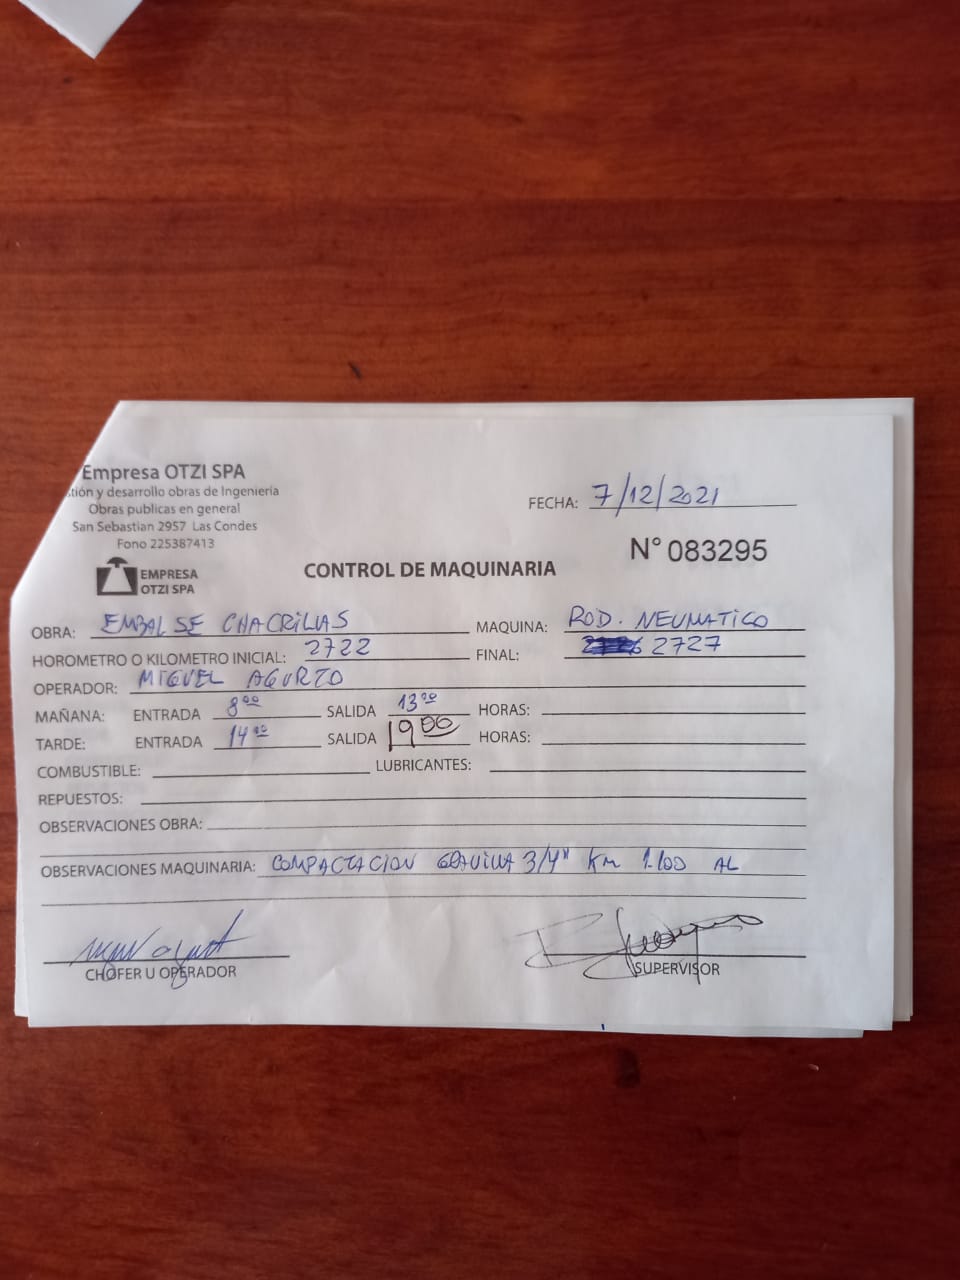 Empresa OTZI SPA
tión y desarrollo obras de Ingeniería
Obras publicas en general
San Sebastian 2957 Las Condes
Fono 225387413
EMPRESA
OTZI SPA
FECHA: 7/12/2021
N° 083295
CONTROL DE MAQUINARIA
OBRA: EMBALSE CHACRILLAS MAQUINA: ROD. NEUMATICO
HOROMETRO O KILOMETRO INICIAL: 2722 FINAL: 2727
OPERADOR: MIGUEL AGURTO
MAÑANA: ENTRADA 8⁰⁰ SALIDA 13⁰⁰ HORAS:
TARDE: ENTRADA 14⁰⁰ SALIDA 19⁰⁰ HORAS:
COMBUSTIBLE: LUBRICANTES:
REPUESTOS:
OBSERVACIONES OBRA:
OBSERVACIONES MAQUINARIA: COMPACTACION GRAVILLA 3/4" Km 1.100 AL
CHOFER U OPERADOR SUPERVISOR